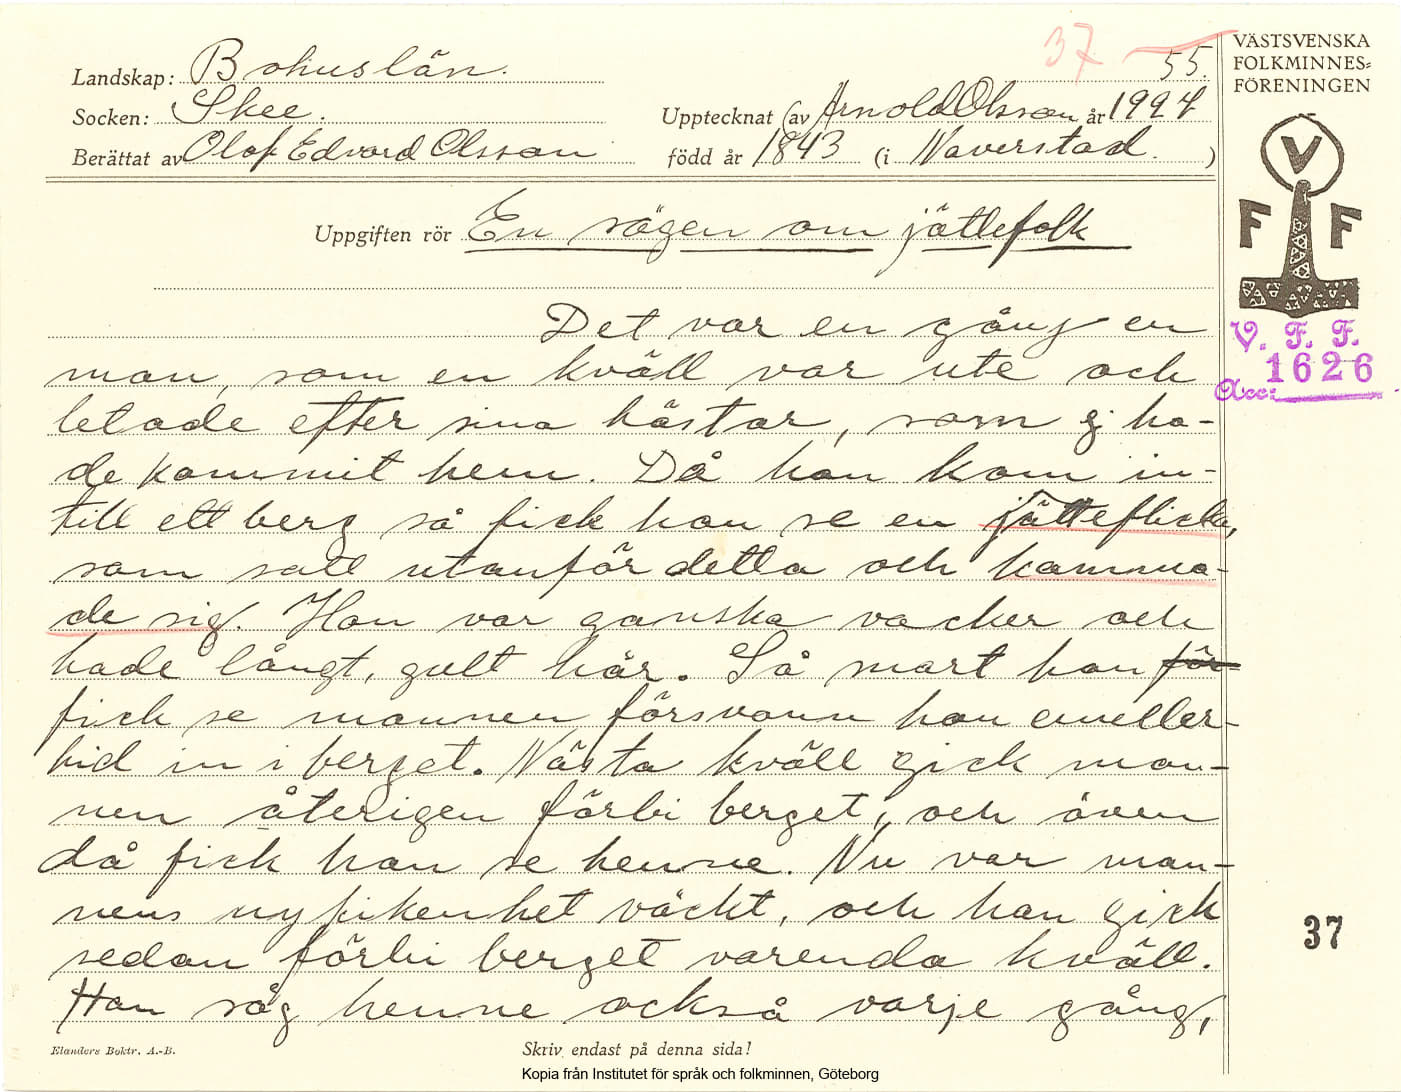 37 55.
Landskap: Bohuslän.
Socken: Skee.
Upptecknat av Arnold Olsson år 1927
Berättat av Olof Edvard Olsson född år 1843 (i Naverstad.)
VÄSTSVENSKA
FOLKMINNES-
FÖRENINGEN
V
F F
V. F. F.
1626
Acc:
Uppgiften rör En sägen om jättefolk
Det var en gång en
man, som en kväll var ute och
letade efter sina hästar, som ej ha-
de kommit hem. Då han kom in-
till ett berg så fick han se en jätteflicka,
som satt utanför detta och kamma-
de sig. Hon var ganska vacker och
hade långt, gult hår. Så snart hon för
fick se mannen försvann hon emeller-
tid in i berget. Nästa kväll gick man-
nen återigen förbi berget, och även
då fick han se henne. Nu var man-
nens nyfikenhet väckt, och han gick
sedan förbi berget varenda kväll.
Han såg henne också varje gång,
37
Elanders Boktr. A.-B.
Skriv endast på denna sida!
Kopia från Institutet för språk och folkminnen, Göteborg